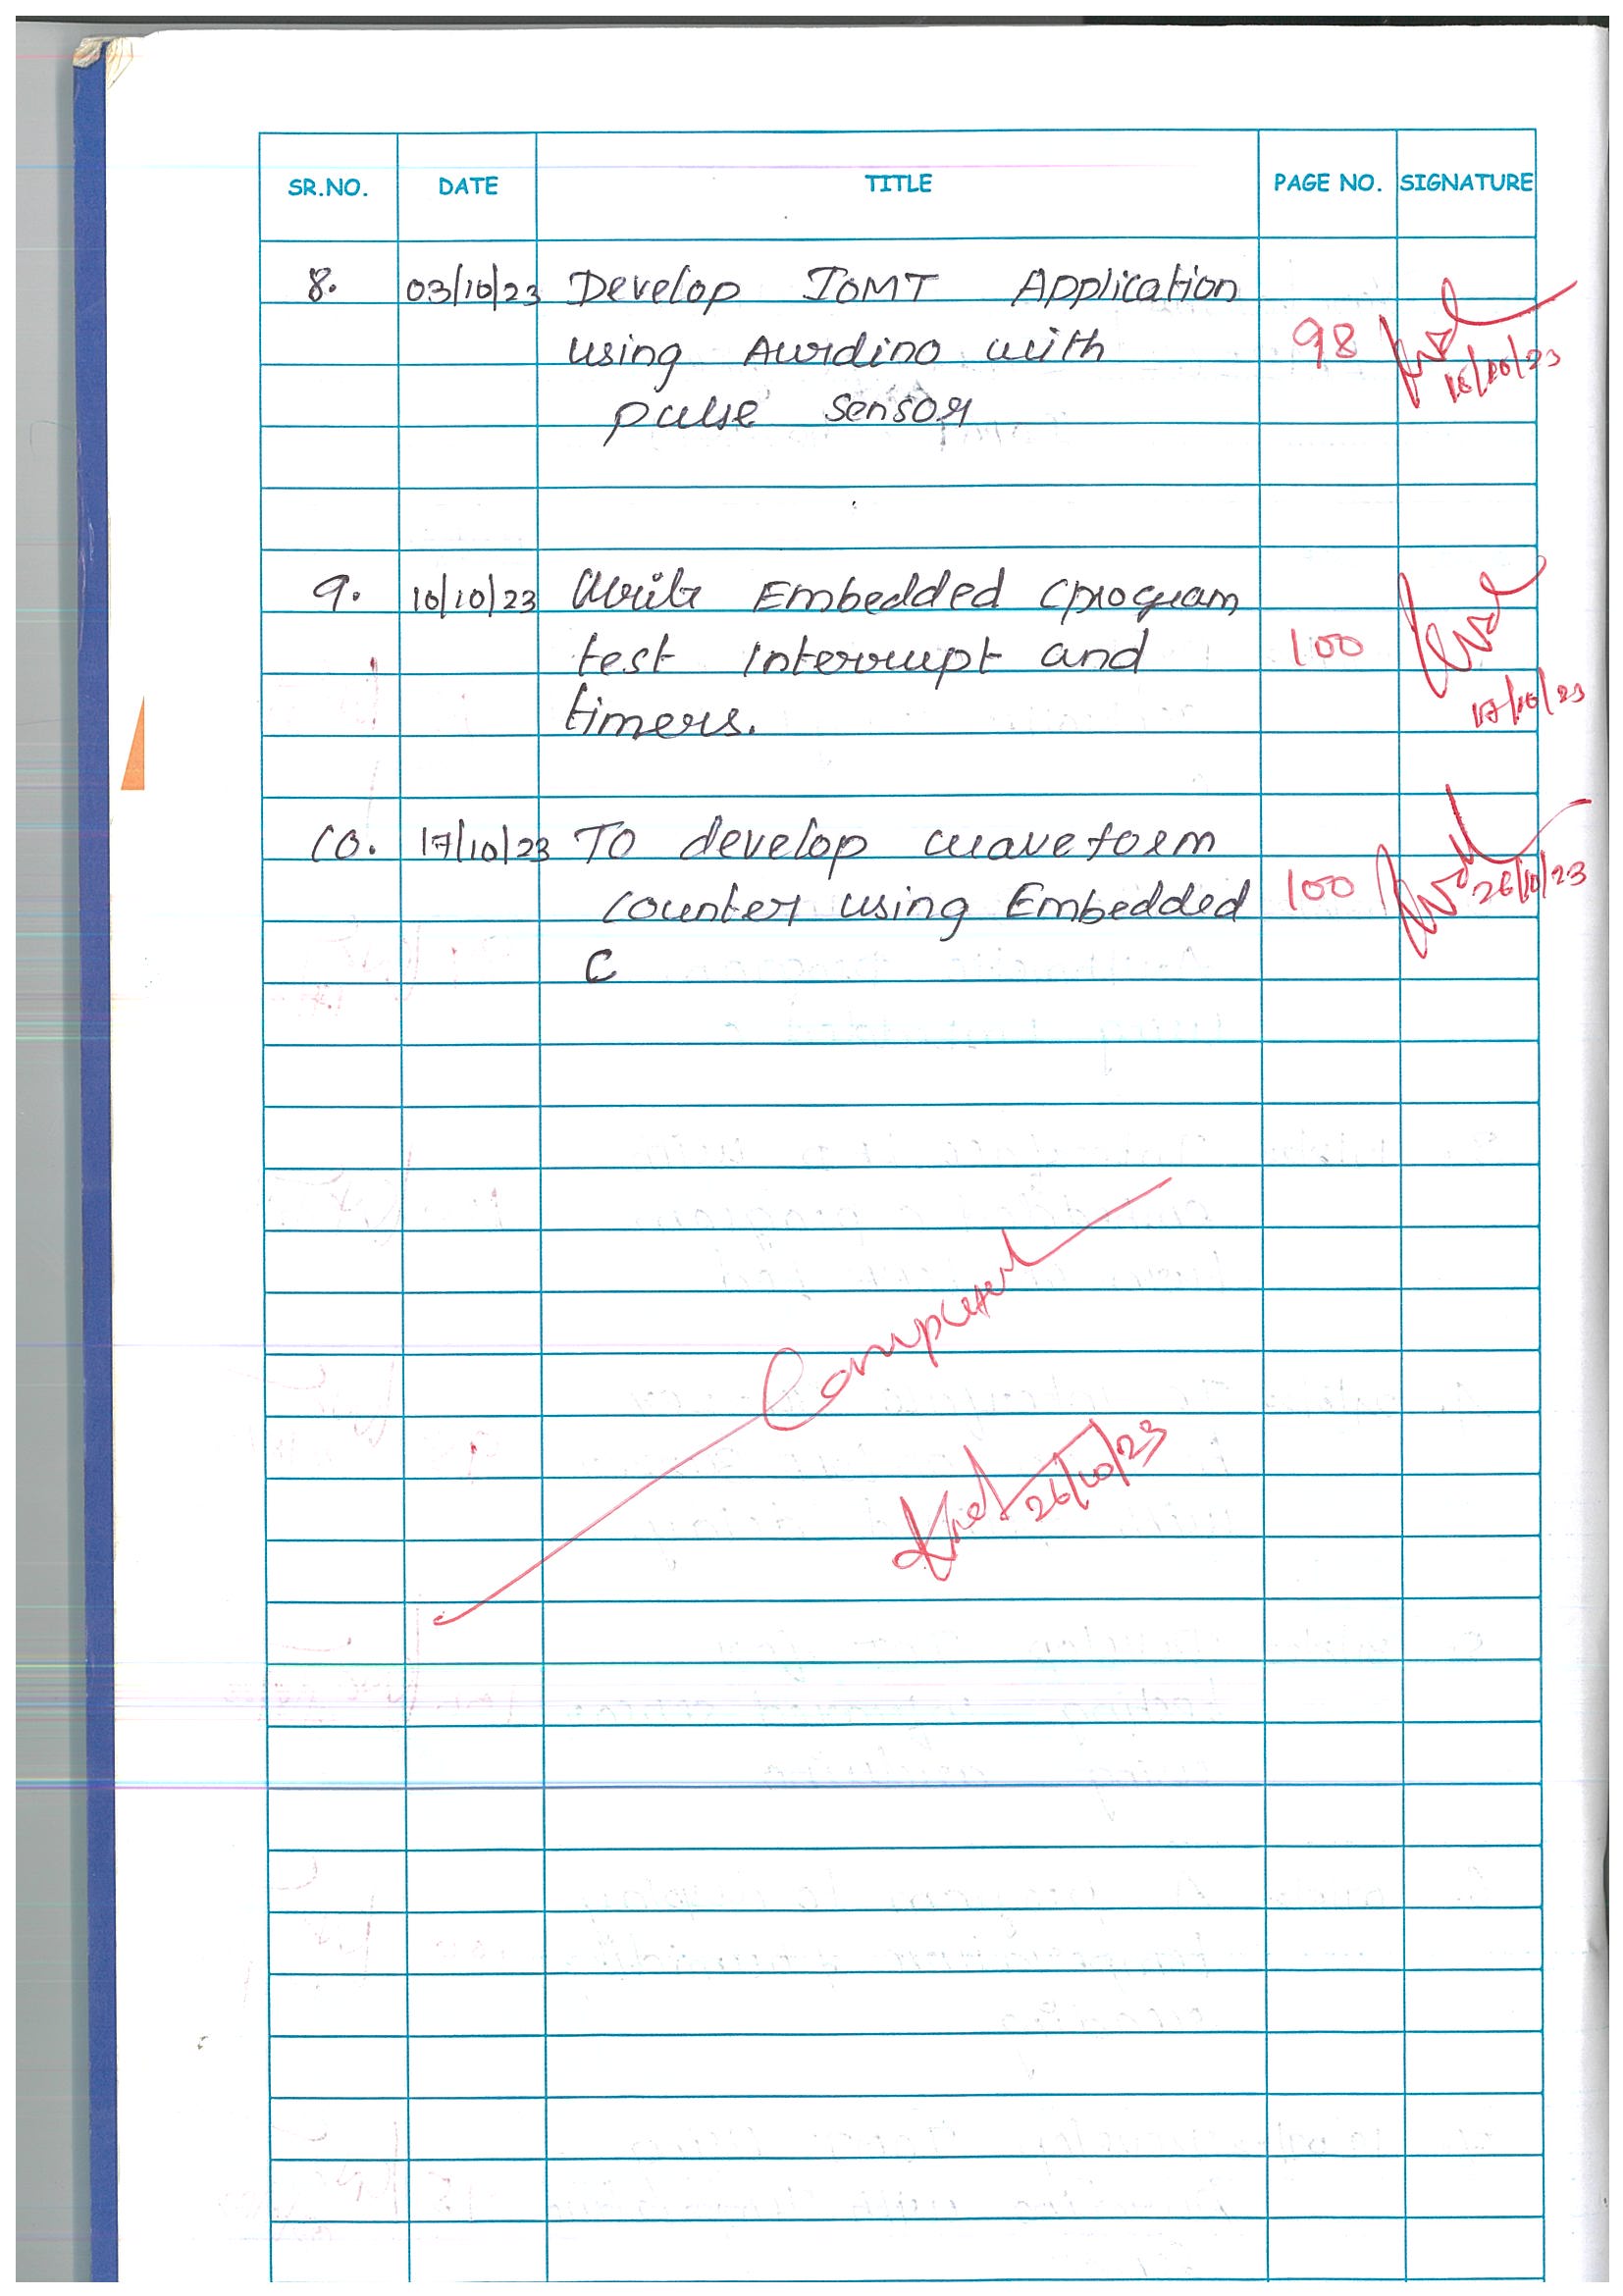 SR.NO. DATE TITLE PAGE NO. SIGNATURE
8. 03/10/23 Develop IOMT Application
using Aurdino with 98
pulse sensor
16/10/23
9. 10/10/23 Write Embedded Cprogram
test interrupt and 100
timers.
17/10/23
10. 17/10/23 To develop waveform
counter using Embedded 100 26/10/23
C
Completed
26/10/23